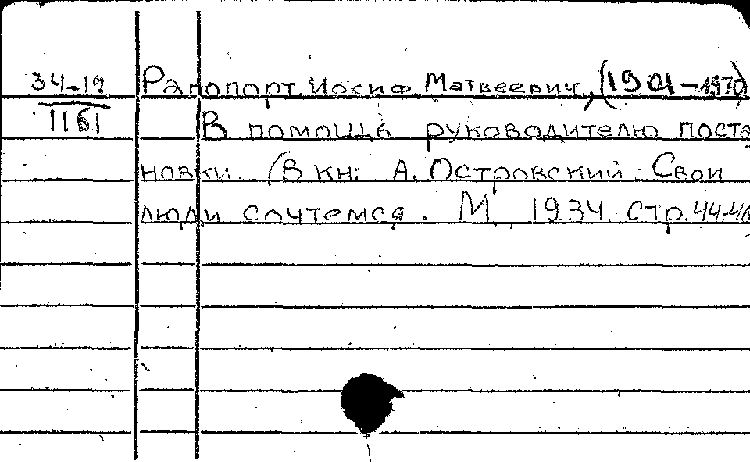 34-19 Рапопорт Иосиф Матвеевич, (1901-1970)
1161 В помощь руководителю поста
новки. (В кн: А. Островский. Свои
люди сочтемся. М, 1934 стр. 44-46